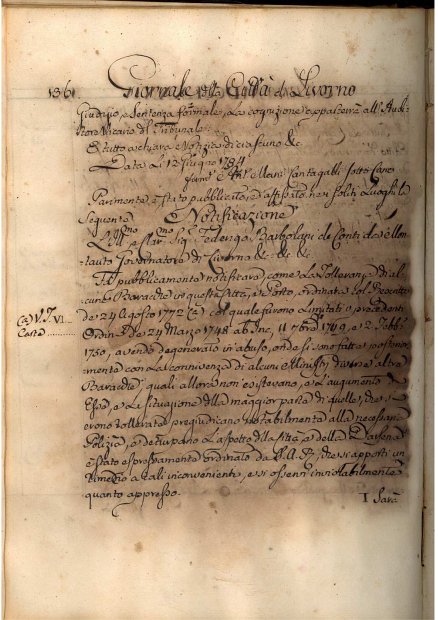 136
Giornale della Città di Livorno
Giudizio e Sentenza formale, La cognizione apparterrà all' Audi-
tore Vicario del Tribunale.
E tutto a chiara Notizia di ciascuno &c
Data Li 12 Giugno 1784
Parimente è stato pubblicato, ed affisso nei soliti Luoghi la
Seguente
Notificazione
L'Ill.mo e Clar.mo Sig.e Federigo Barbolani de Conti da Mon-
tauto Governatore di Livorno &c &c &c
Fa pubblicamente notificare, come la Tolleranza di al-
cune Baracche in questa Città, e Porto, ordinata col
de 24 Agosto 1772 (a) col quale furono Limitati i precedenti
Ordini de 24 Marzo 1748 ab Inc, 11 1749, e 2 Febb.
1750, avendo degenerato in abuso, onde si sono fatte posterior-
mente con la connivenza di alcuni Ministri, diverse altre
Baracche, quali allora non esistevano, e l'augumento
Esse, e la situazione della maggior parte di quelle, che si
erono tollerate pregiudicano notabilmente alla necessaria
Polizia, e deturpano l'aspetto della Città, e della Darsena
è stato espressamente ordinato da S. A. R., che si apporti un
rimedio a tali inconvenienti, e si osservi inviolabilmente
quanto appresso.
I Sarà
VI